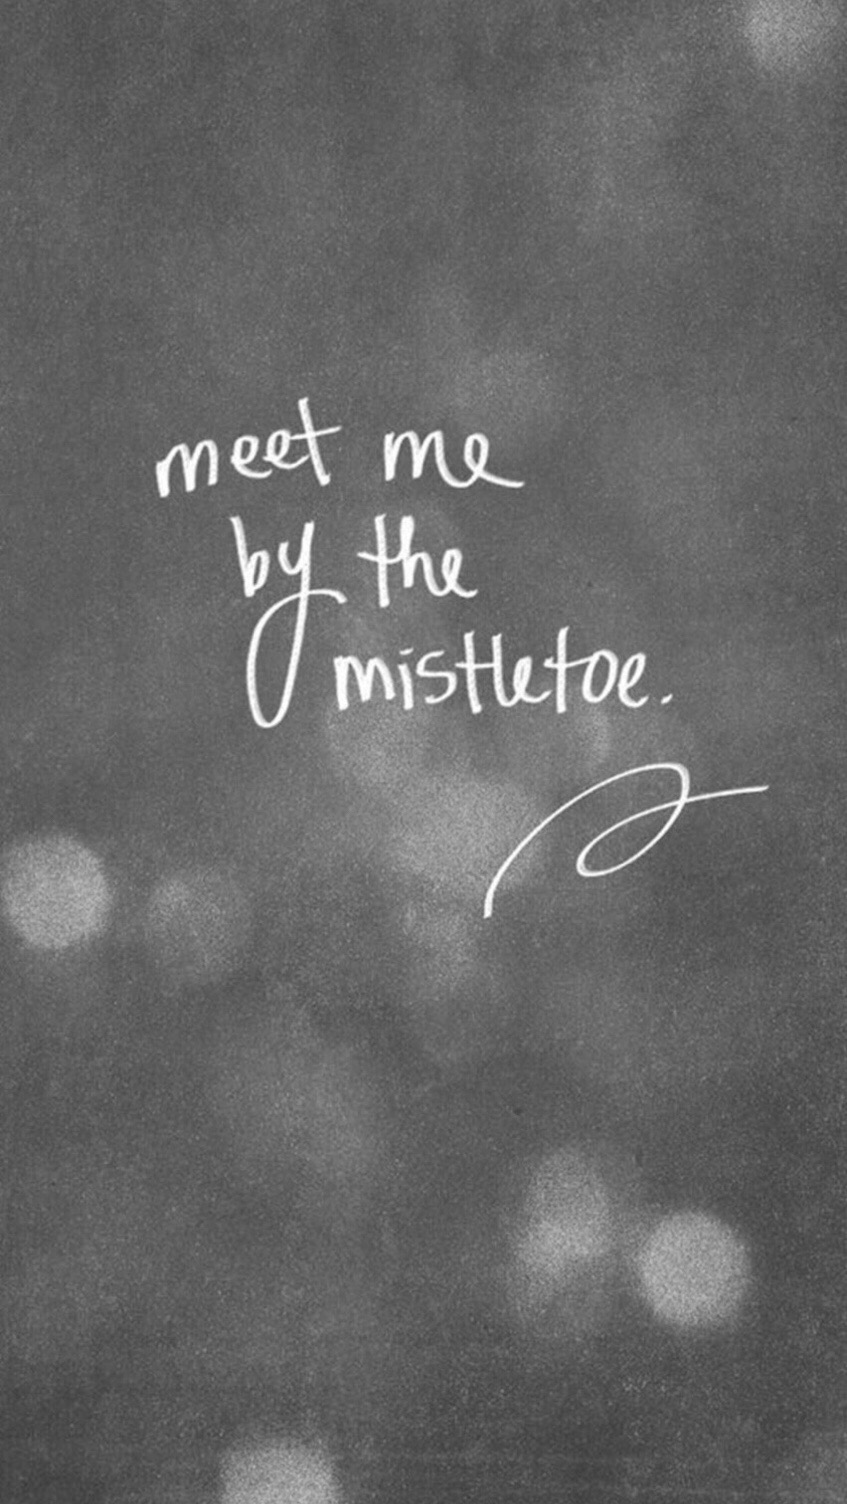 meet me
by the
mistletoe.